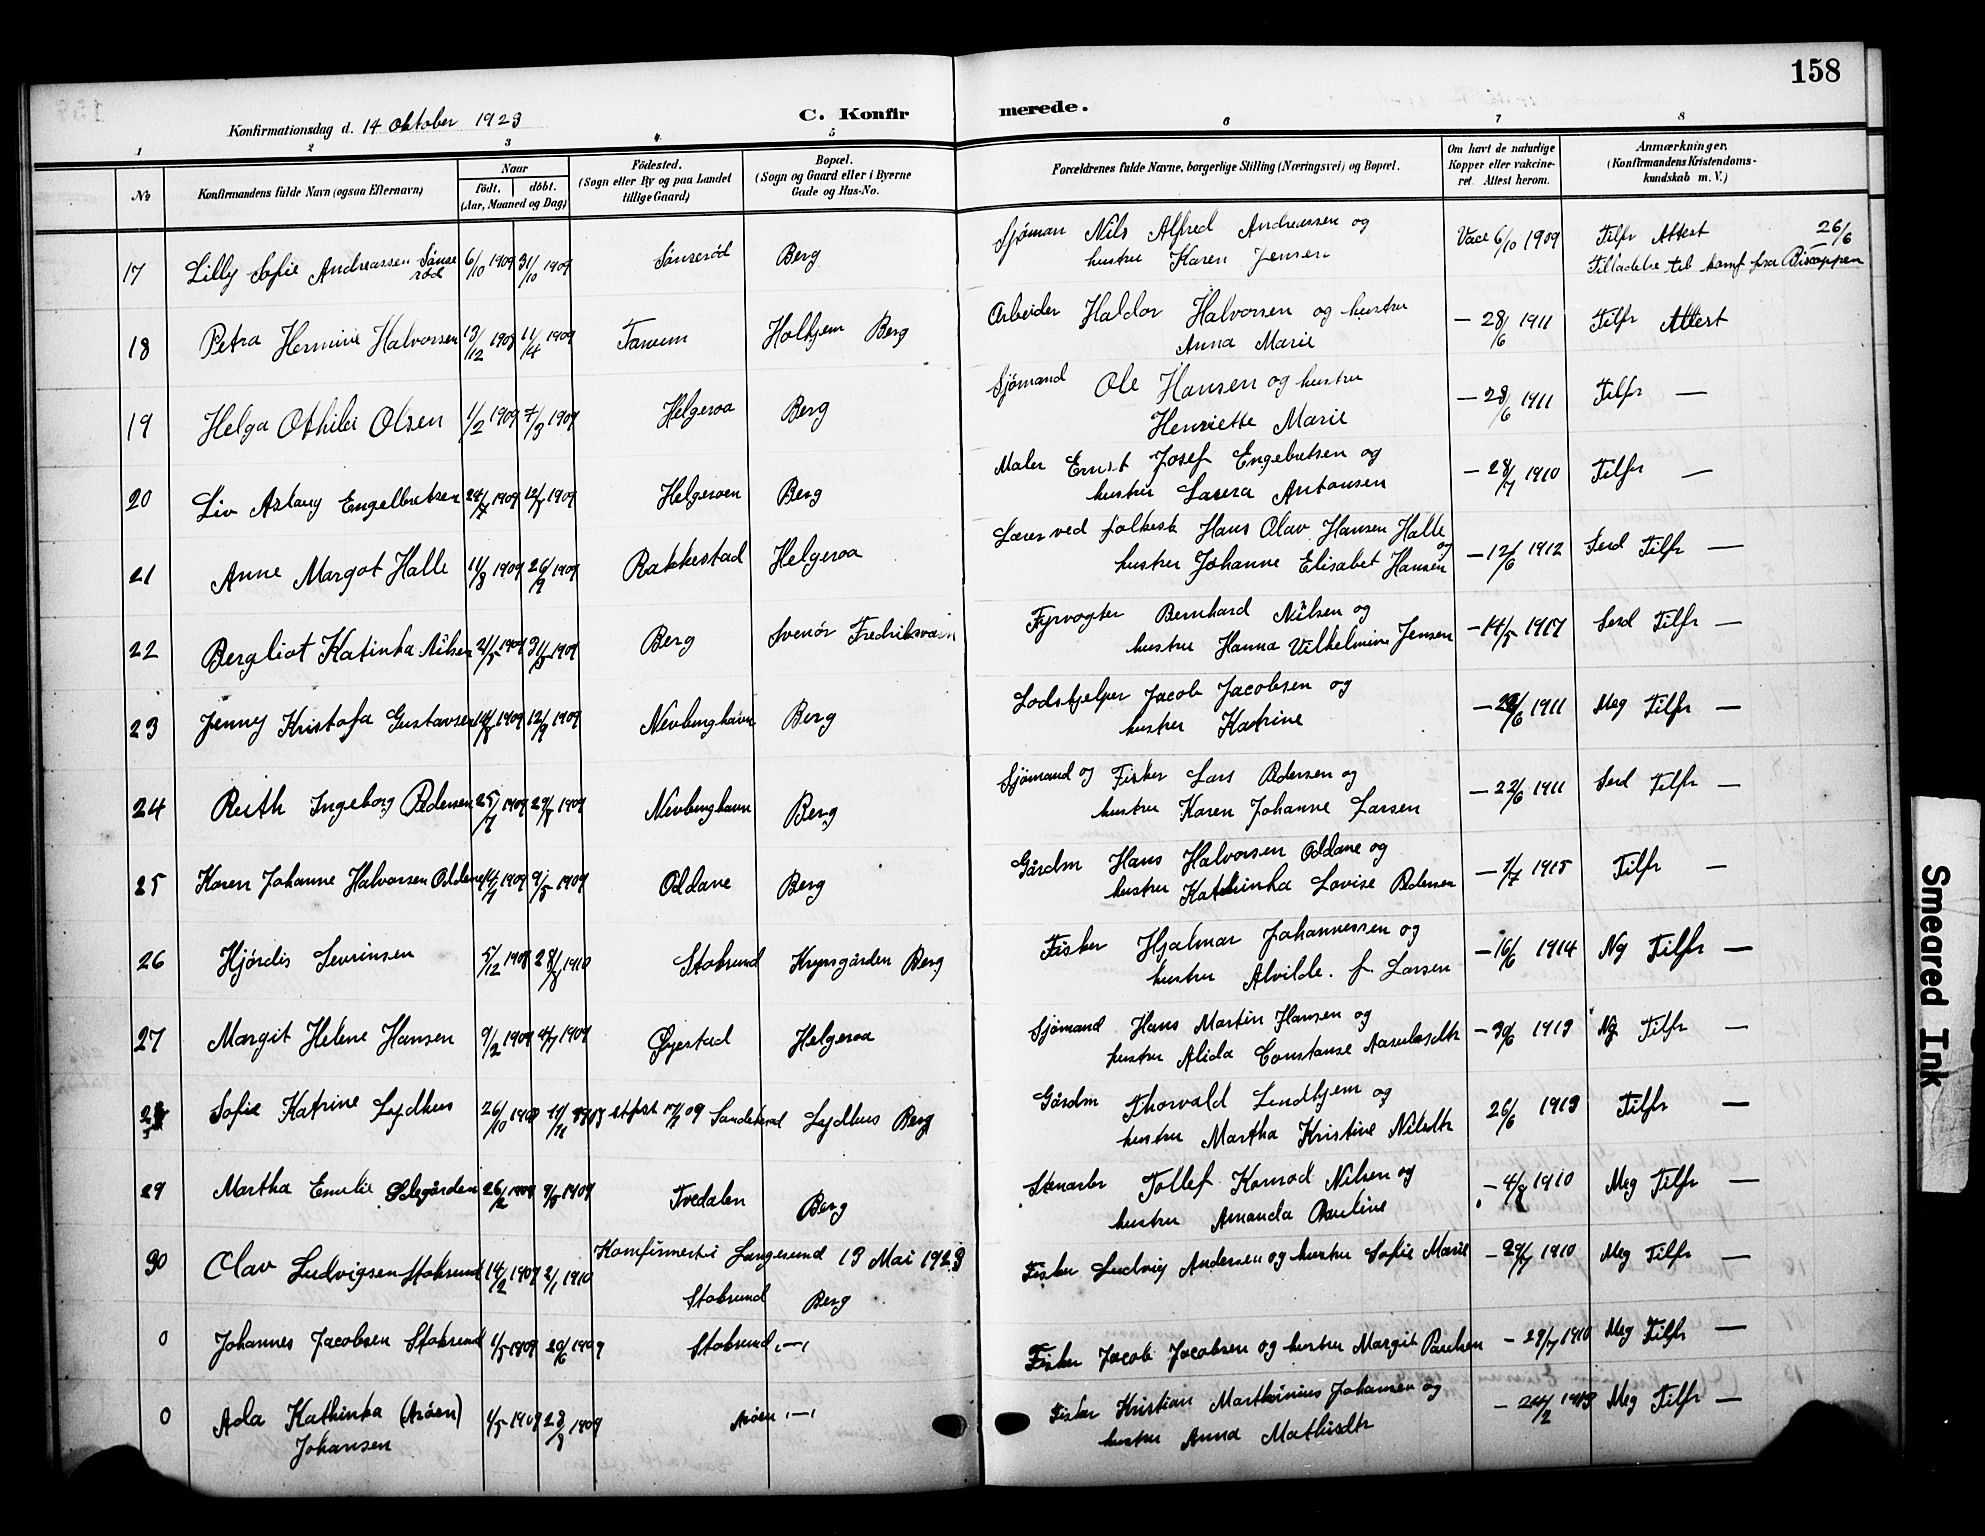 158
C. Konfirmerede.
Konfirmationsdag d. 14 Oktober 1923
1 2 3 4 5 6 7 8
No
Konfirmandens fulde Navn (ogsaa Efternavn)
Naar
födt. döbt.
(Aar, Maaned og Dag)
Födested.
(Sogn eller By og paa Landet
tillige Gaard)
Bopæl.
(Sogn og Gaard eller i Byerne
Gade og Hus-No.
Forældrenes fulde Navne, borgerlige Stilling (Næringsvei) og Bopæl.
Om havt de naturlige
Kopper eller vakcine-
ret. Attest herom.
Anmærkninger.
(Konfirmandens Kristendoms-
kundskab m. V.)
17 Lilly Sofie Andreassen Sönse
röd 6/10 1909 31/10 1909 Sönseröd Berg Sjöman Nils Alfred Andreassen og
hustru Karen Jensen Vacc 6/10 1909 Tilfr Attest 26/6
Tilladelse til konf fra Biscoppen
18 Petra Hermine Halvorsen 13/12 1908 11/4 1909 Tanum Holhjem Berg Arbeider Haldor Halvorsen og hustru
Anna Marie — 28/6 1911 Tilfr Attest
19 Helga Othilei Olsen 1/2 1909 7/3 1909 Helgeroa Berg Sjömand Ole Hansen og hustru
Henriette Marie — 28/6 1911 Tilfr —
20 Liv Aslaug Engelbretsen 24/7 1909 1909 Helgeroen Berg Maler Ernst Josef Engebretsen og
hustru Laura Antonsen — 28/7 1910 Tilfr —
21 Anne Margot Halle 11/8 1909 26/9 1909 Rakkestad Helgeroa Lærer ved folkesk Hans Olav Hansen Halle
og
hustru Johanne Elisabet Hansen — 12/6 1912 Serd Tilfr —
22 Bergliot Katinka Nilsen 21/5 1909 31/5 1909 Berg Svenör Fredriksværn Fyrvogter Bernhard Nilsen og
hustru Hanna Vilhelmine Jensen — 14/5 1917 Serd Tilfr —
23 Jenny Kristofa Gustavsen 1909 12/9 1909 Nevlunghavn Berg Lodshjelper Jacob Jacobsen og
hustru Katrine — 1911 Meg Tilfr —
24 Ruth Ingeborg Pedersen 25/7 1909 29/8 1909 Nevlunghavn Berg Sjömand og Fisker Lars Pedersen og
hustru Karen Johanne Larsen — 22/6 1911 Serd Tilfr —
25 Karen Johanne Halvorsen Oddene 1909 9/5 1909 Oddane Berg Gårdm Hans Halvorsen Oddane og
hustru Kathinka Lovise Pedersen — 1/7 1915 Tilfr —
26 Hjördis Sevrinsen 5/12 1908 1910 Stoksund Krynsgården Berg Fisker Hjalmar Johannessen og
hustru Alvilde. f. Larsen — 16/6 1914 Ng Tilfr —
27 Margit Helene Hansen 9/2 1909 4/7 1909 Öyestad Helgeroa Sjömand Hans Martin Hansen og
hustru Alida Constanse — 30/6 1913 Ng Tilfr —
28 Sofie Katrine Lydhus 26/10 1908 Sandekred Lydhus Berg Gårdm Thorvald Lindhjem og
hustru Martha Kristine Nilsdtr 26/6 1913 Tilfr —
29 Martha Emelie Solegården 26/2 1909 9/5 1909 Tvedalen Berg Stenarbr Tollef Konrad Nilsen og
hustru Amanda Pauline — 4/8 1910 Meg Tilfr —
30 Olav Ludvigsen Stoksund 14/2 1909 2/1 1910 Konfirmert i Langesund 13 Mai 1923
Stoksund Berg Fisker Ludvig Andersen og hustru Sofie Marie — 29/7 1910 Meg Tilfr —
0 Johannes Jacobsen Stoksund 1/5 1909 20/6 1909 Stoksund —"— Fisker Jacob Jacobsen og hustru Margit Paulsen — 29/7 1910 Meg Tilfr —
0 Ada Kathinka (Aröen)
Johansen 4/5 1909 23/8 1909 Aröen —"— Fisker Kristian Marthinius Johansen og
hustru Anna Mathisdtr — 24/2 1913 Meg Tilfr —
Smeared Ink